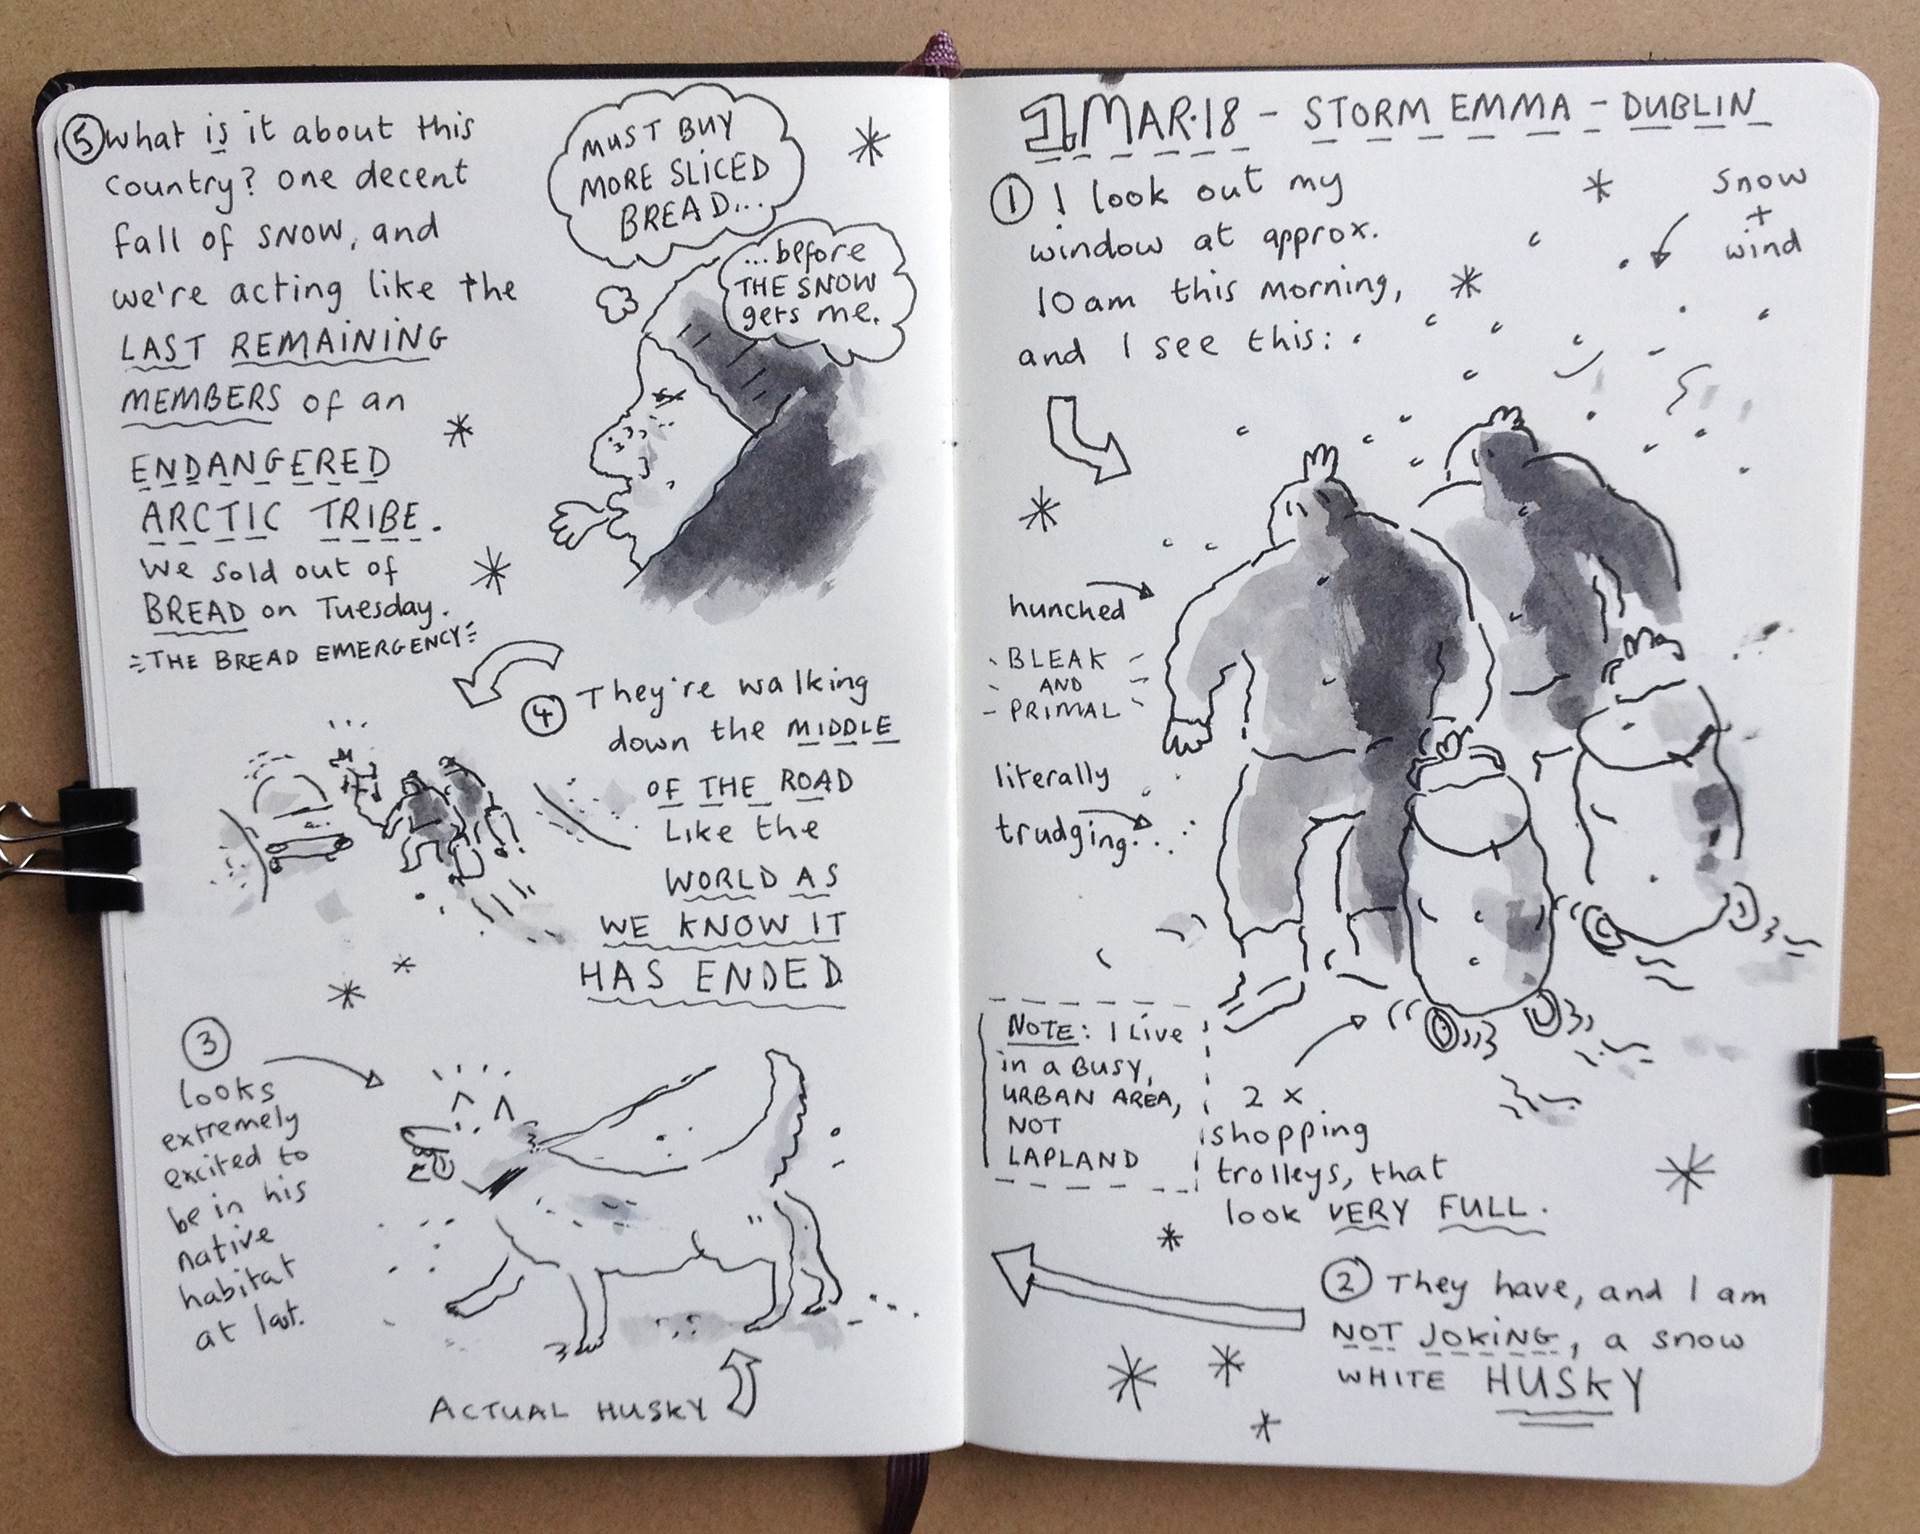 1 MAR.18 - STORM EMMA - DUBLIN
① I look out my
window at approx.
10am this morning,
and I see this:
snow
+
wind
hunched
BLEAK
AND
PRIMAL
literally
trudging...
NOTE: I Live
in a BUSY,
URBAN AREA,
NOT
LAPLAND
2 x
shopping
trolleys, that
look VERY FULL.
② They have, and I am
NOT JOKING, a snow
WHITE HUSKY
③
looks
extremely
excited to
be in his
native
habitat
at last.
ACTUAL HUSKY
④ They're walking
down the MIDDLE
OF THE ROAD
Like the
WORLD AS
WE KNOW IT
HAS ENDED
⑤ What is it about this
country? One decent
fall of SNOW, and
we're acting like the
LAST REMAINING
MEMBERS of an
ENDANGERED
ARCTIC TRIBE.
We sold out of
BREAD on Tuesday.
THE BREAD EMERGENCY
MUST BUY
MORE SLICED
BREAD...
...before
THE SNOW
gets me.